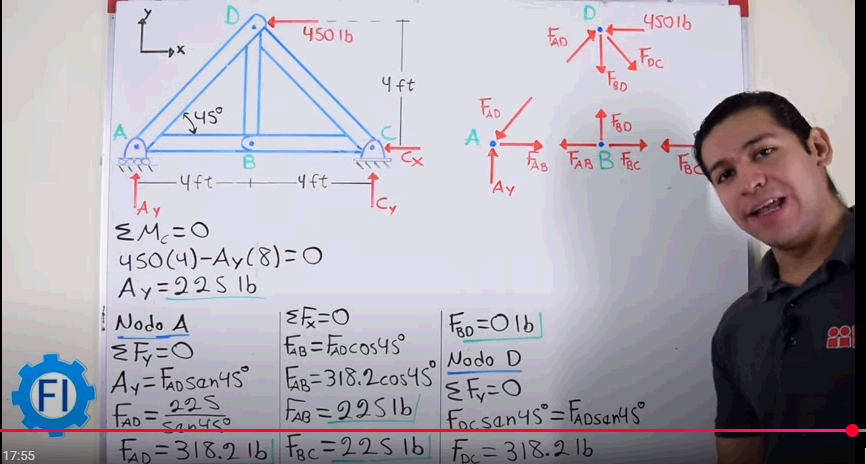 y
x
D
450 lb
4 ft
45°
A
B
C
Cx
4 ft
4 ft
Ay
Cy
D
450 lb
FAD
FBD
FDC
FAD
A
FAB
Ay
FBD
FAB
B
FBC
FBC
ΣMc=0
450(4)-Ay(8)=0
Ay=225 lb
Nodo A
ΣFy=0
Ay=FADsan45°
FAD=225/san45°
FAD=318.2 lb
ΣFx=0
FAB=FADcos45°
FAB=318.2cos45°
FAB=225 lb
FBC=225 lb
FBD=0 lb
Nodo D
ΣFy=0
FDCsan45°=FADsan45°
FDC=318.2 lb
FI
17:55